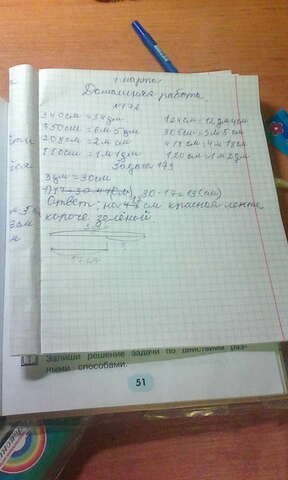 1 марта
Домашняя работа
№ 172
340см=34дм 124см=12дм4см
350см=6м5дм 305см=3м5см
208см=2м см 418см=4м18см
110см=1м1дм 120см=1м2дм
Задача 173
3дм=30см
30-17=13(см)
Ответ: на см красная лента
короче зелёной
17см
Запиши решение задачи по действиям раз-
ными способами.
51